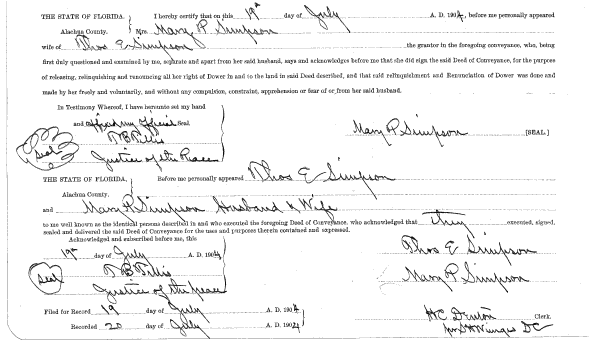 THE STATE OF FLORIDA. I hereby certify that on this 19th day of July A. D. 1904, before me personally appeared
Alachua County. Mrs Mary P. Simpson
wife of Thos E Simpson the grantor in the foregoing conveyance, who, being
first duly questioned and examined by me, separate and apart from her said husband, says and acknowledges before me that she did sign the said Deed of Conveyance, for the purpose
of releasing, relinquishing and renouncing all her right of Dower in and to the land in said Deed described, and that said relinquishment and Renunciation of Dower was done and
made by her freely and voluntarily, and without any compulsion, constraint, apprehension or fear of or from her said husband.
In Testimony Whereof, I have hereunto set my hand
and affixed my official Seal
Seal T B Ellis Mary P Simpson [SEAL]
Justice of the Peace
THE STATE OF FLORIDA. Before me personally appeared Thos E Simpson
Alachua County.
and Mary P. Simpson Husband & Wife
to me well known as the identical persons described in and who executed the foregoing Deed of Conveyance, who acknowledged that They executed, signed,
sealed and delivered the said Deed of Conveyance for the uses and purposes therein contained and expressed.
Acknowledged and subscribed before me, this
19th day of July A. D. 1904 Thos E Simpson
Seal T B Ellis Mary P Simpson
Justice of the Peace
Filed for Record 19 day of July A. D. 1904 H C Denton Clerk.
Recorded 20 day of July A. D. 1904 DC